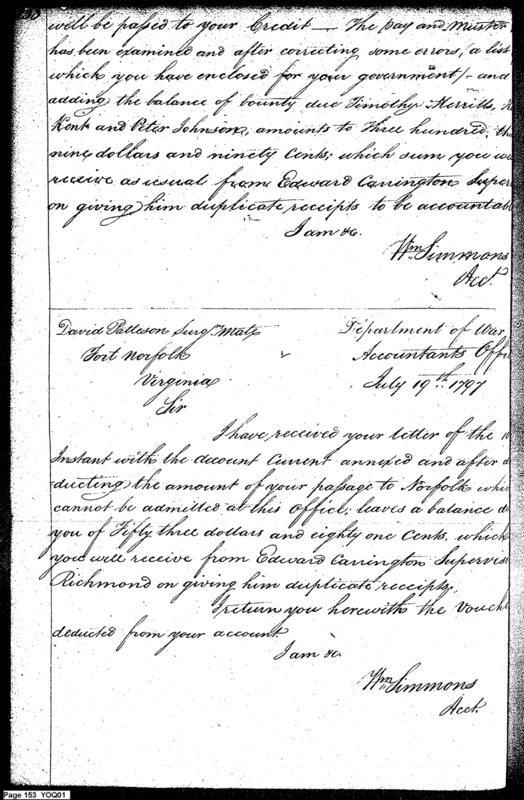 will be passed to your Credit — The pay and Muster
has been examined and after correcting some errors, (a list
which you have enclosed for your government) - and
adding the balance of bounty due Timothy Merrills,
Kent and Peter Johnson, amounts to Three hundred,
nine dollars and ninety Cents; which sum you
receive as usual from Edward Carrington Super
on giving him duplicate receipts to be accountab
I am &c.
Wm Simmons
Acct.
David Patteson Surgns Mate
Fort Norfolk
Virginia
Department of War
Accountants Offi
July 19th 1797
Sir
I have received your letter of the
Instant with the account Current annexed and after d
ducting the amount of your passage to Norfolk whic
cannot be admitted at this Office; leaves a balance d
you of Fifty three dollars and eighty one Cents, which
you will receive from Edward Carrington Supervis
Richmond on giving him duplicate receipts,
I return you herewith the Vouch
deducted from your account
I am &c.
Wm Simmons
Acct.
Page 153 YOQ01